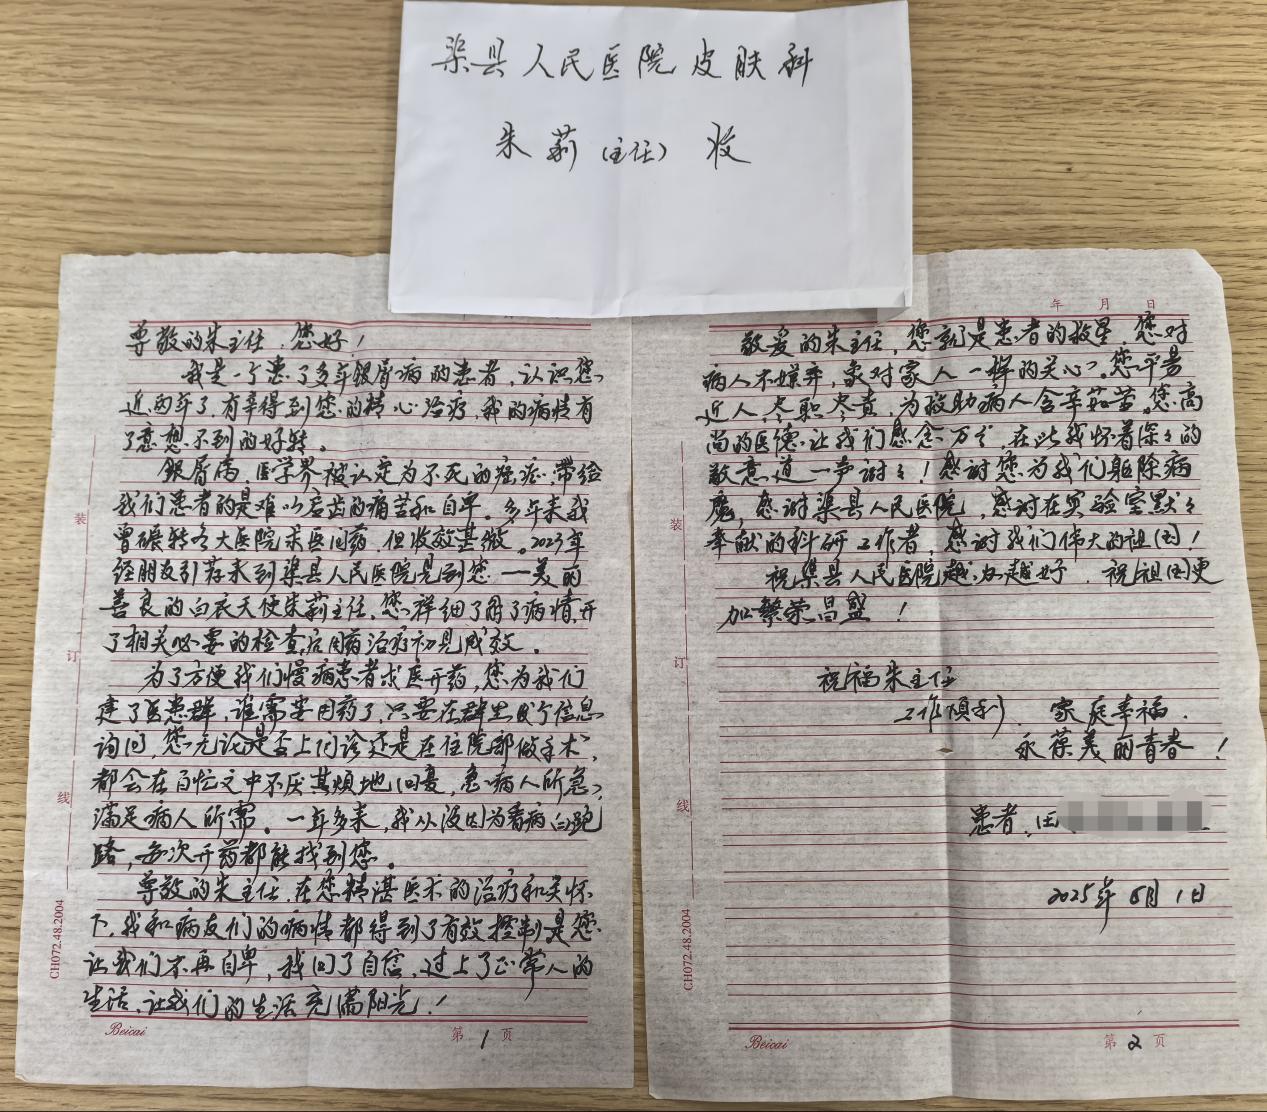 渠县人民医院皮肤科
朱莉（主任）收
尊敬的朱主任，您好！
我是一个患了多年银屑病的患者，认识您
近两年了，有幸得到您的精心治疗，我的病情有
了意想不到的好转。
银屑病，医学界被认定为不死的癌症，带给
我们患者的是难以启齿的痛苦和自卑。多年来我
曾碾转各大医院求医问药，但收效甚微。2023年
经朋友引荐来到渠县人民医院见到您——美丽
善良的白衣天使朱莉主任，您详细了解了病情，开
了相关必要的检查，后用药治疗初见成效。
为了方便我们慢病患者求医开药，您为我们
建了医患群，谁需要用药了，只要在群里发个信息
询问，您无论是否上门诊还是在住院部做手术，
都会在百忙之中不厌其烦地回复，急病人所急，
满足病人所需。一年多来，我从没因为看病白跑
路，每次开药都能找到您。
尊敬的朱主任，在您精湛医术的治疗和关怀
下，我和病友们的病情都得到了有效控制，是您
让我们不再自卑，找回了自信，过上了正常人的
生活，让我们的生活充满阳光！
Beicai
第 1 页
装
订
线
CH072.48.2004
年 月 日
敬爱的朱主任，您就是患者的救星，您对
病人不嫌弃，象对家人一样的关心。您平易
近人，尽职尽责，为救助病人含辛茹苦。您高
尚的医德让我们感念万分，在此我怀着深々的
敬意道一声谢々！感谢您为我们驱除病
魔，感谢渠县人民医院，感谢在实验室默々
奉献的科研工作者，感谢我们伟大的祖国！
祝渠县人民医院越办越好，祝祖国更
加繁荣昌盛！
祝福朱主任
工作顺利，家庭幸福，
永葆美丽青春！
患者：田
2025年6月1日
Beicai
第 2 页
装
订
线
CH072.48.2004